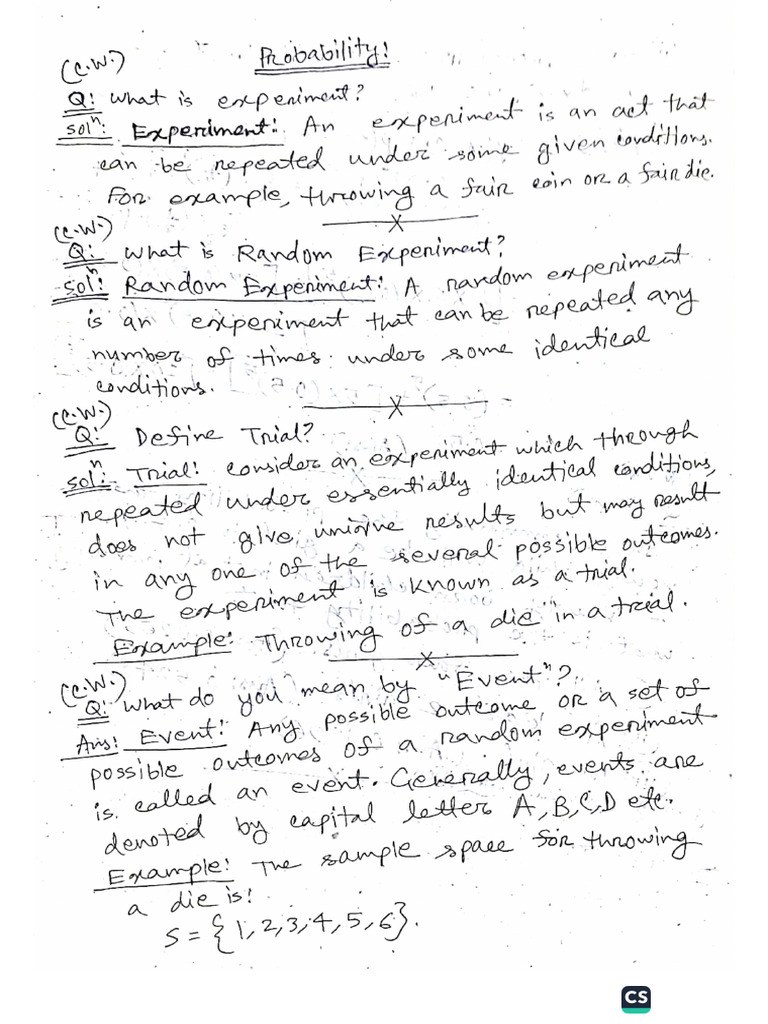 (C.W.)
Probability!
Q: What is experiment?
Solⁿ: Experiment: An experiment is an act that
can be repeated under some given conditions.
For example, throwing a fair coin or a fair die.
(C.W.)
Q: What is Random Experiment?
Solⁿ: Random Experiment: A random experiment
is an experiment that can be repeated any
number of times under some identical
conditions.
(C.W.)
Q: Define Trial?
Solⁿ: Trial: Consider an experiment which through
repeated under essentially identical conditions,
does not give unique results but may result
in any one of the several possible outcomes.
The experiment is known as a trial.
Example: Throwing of a die" in a trial.
(C.W.)
Q: What do you mean by "Event"?
Ans: Event: Any possible outcome or a set of
possible outcomes of a random experiment
is called an event. Generally, events are
denoted by capital letter A, B, C, D etc.
Example: The sample space for throwing
a die is:
S = {1, 2, 3, 4, 5, 6}.
CS